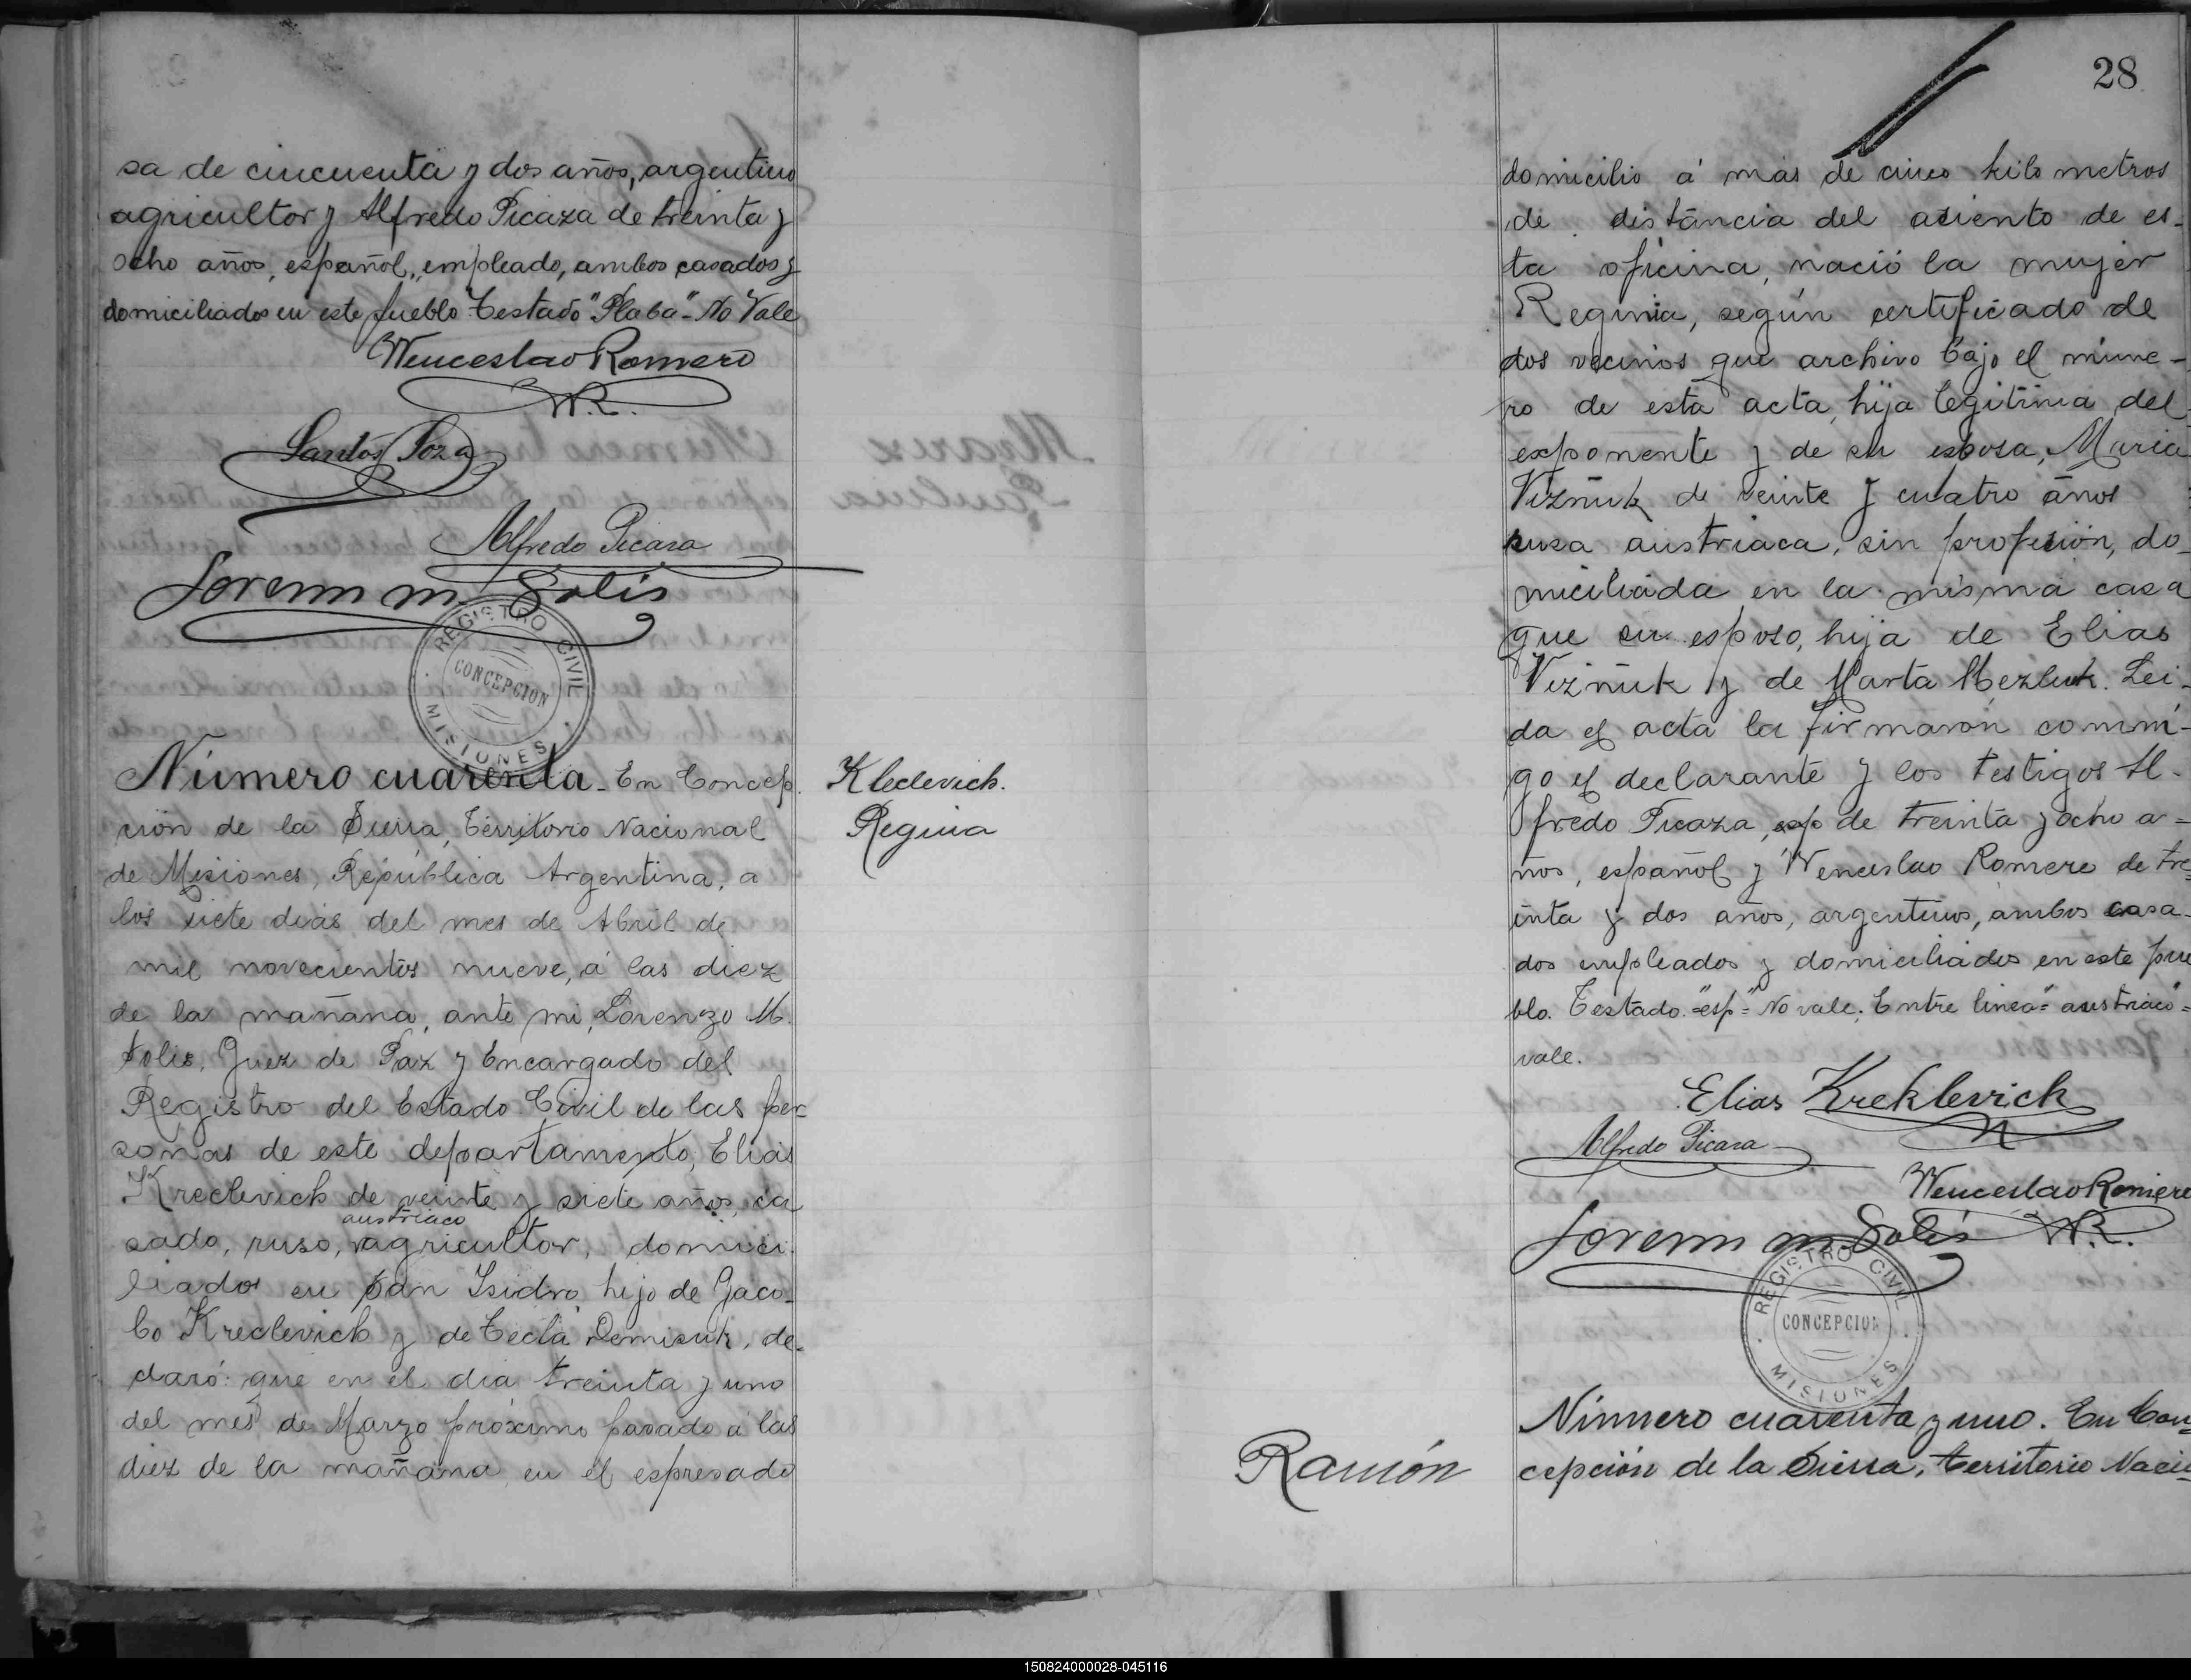 sa de cincuenta y dos años, argentino
agricultor y Alfredo Picaza de treinta y
ocho años, español, empleado, ambos casados y
domiciliados en este pueblo Testado "Plaba" - No Vale
Wenceslao Romero
W.R.
Santos Soza
Alfredo Picasa
Lorenzo M. Solis
REGISTRO CIVIL
CONCEPCION
MISIONES
Número cuarenta - En Concep
ción de la Sierra, Territorio Nacional
de Misiones, República Argentina, a
los siete dias del mes de Abril de
mil novecientos nueve, á las diez
de la mañana, ante mi, Lorenzo M.
Solis, Juez de Paz y Encargado del
Registro del Estado Civil de las per=
sonas de este departamento, Elias
Kreclevich de veinte y siete años, ca
austriaco
sado, ruso, agricultor, domici
liados en San Isidro, hijo de Jaco-
bo Kreclevich y de Tecla Demisuk, de-
claró: que en el dia treinta y uno
del mes de Marzo próximo pasado á las
diez de la mañana, en el espresado
Kleclevich.
Regina
28
domicilio á más de cinco kilo metros
de distáncia del asiento de es-
ta oficina, nació la mujer
Reginia, según certificado de
dos vecinos que archivo bajo el núme-
ro de esta acta, hija legitima del
exponente y de su esposa, Maria
Vizñuk de veinte y cuatro años
rusa austriaca, sin profesión, do-
miciliada en la misma casa
que su esposo, hija de Elias
Vizñuk y de Marta Mezluk. Lei-
da el acta la firmaron conmi-
go el declarante y los testigos Al-
fredo Picaza, esp de treinta y ocho a=
ños, español y Wenceslao Romero de tre=
inta y dos años, argentinos, ambos casa-
dos empleados y domiciliados en este pue
blo. Testado "esp" = No vale; Entre linea "austriaco" =
vale.
Elias Kreklevick
Alfredo Picasa
Wenceslao Romero
W.R.
Lorenzo M. Solis
REGISTRO CIVIL
CONCEPCION
MISIONES
Ramón
Número cuarenta y uno. En Con=
cepción de la Sierra, Territorio Nacio=
150824000028-045116